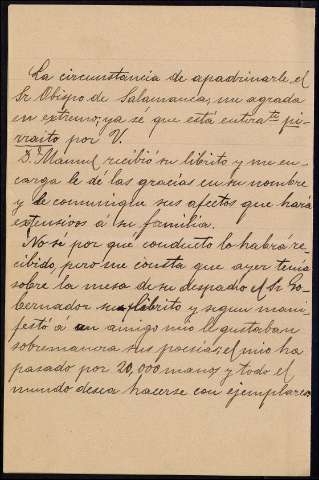 La circunstancia de apadrinarle el
Sr Obispo de Salamanca, me agrada
en extremo; ya sé que está enterate
por V.
D. Manuel recibió su librito y me en-
carga le dé las gracias en su nombre
y le comunique sus afectos que hará
extensivos á su familia.
No se por qué conducto lo habrá re-
cibido, pero me consta que ayer tenía
sobre la mesa de su despacho el Sr Go-
bernador su librito y segun mani-
festó á un amigo mio le gustaban
sobremanera sus poesias; el mio ha
pasado por 20,000 manos y todo el
mundo desea hacerse con ejemplares